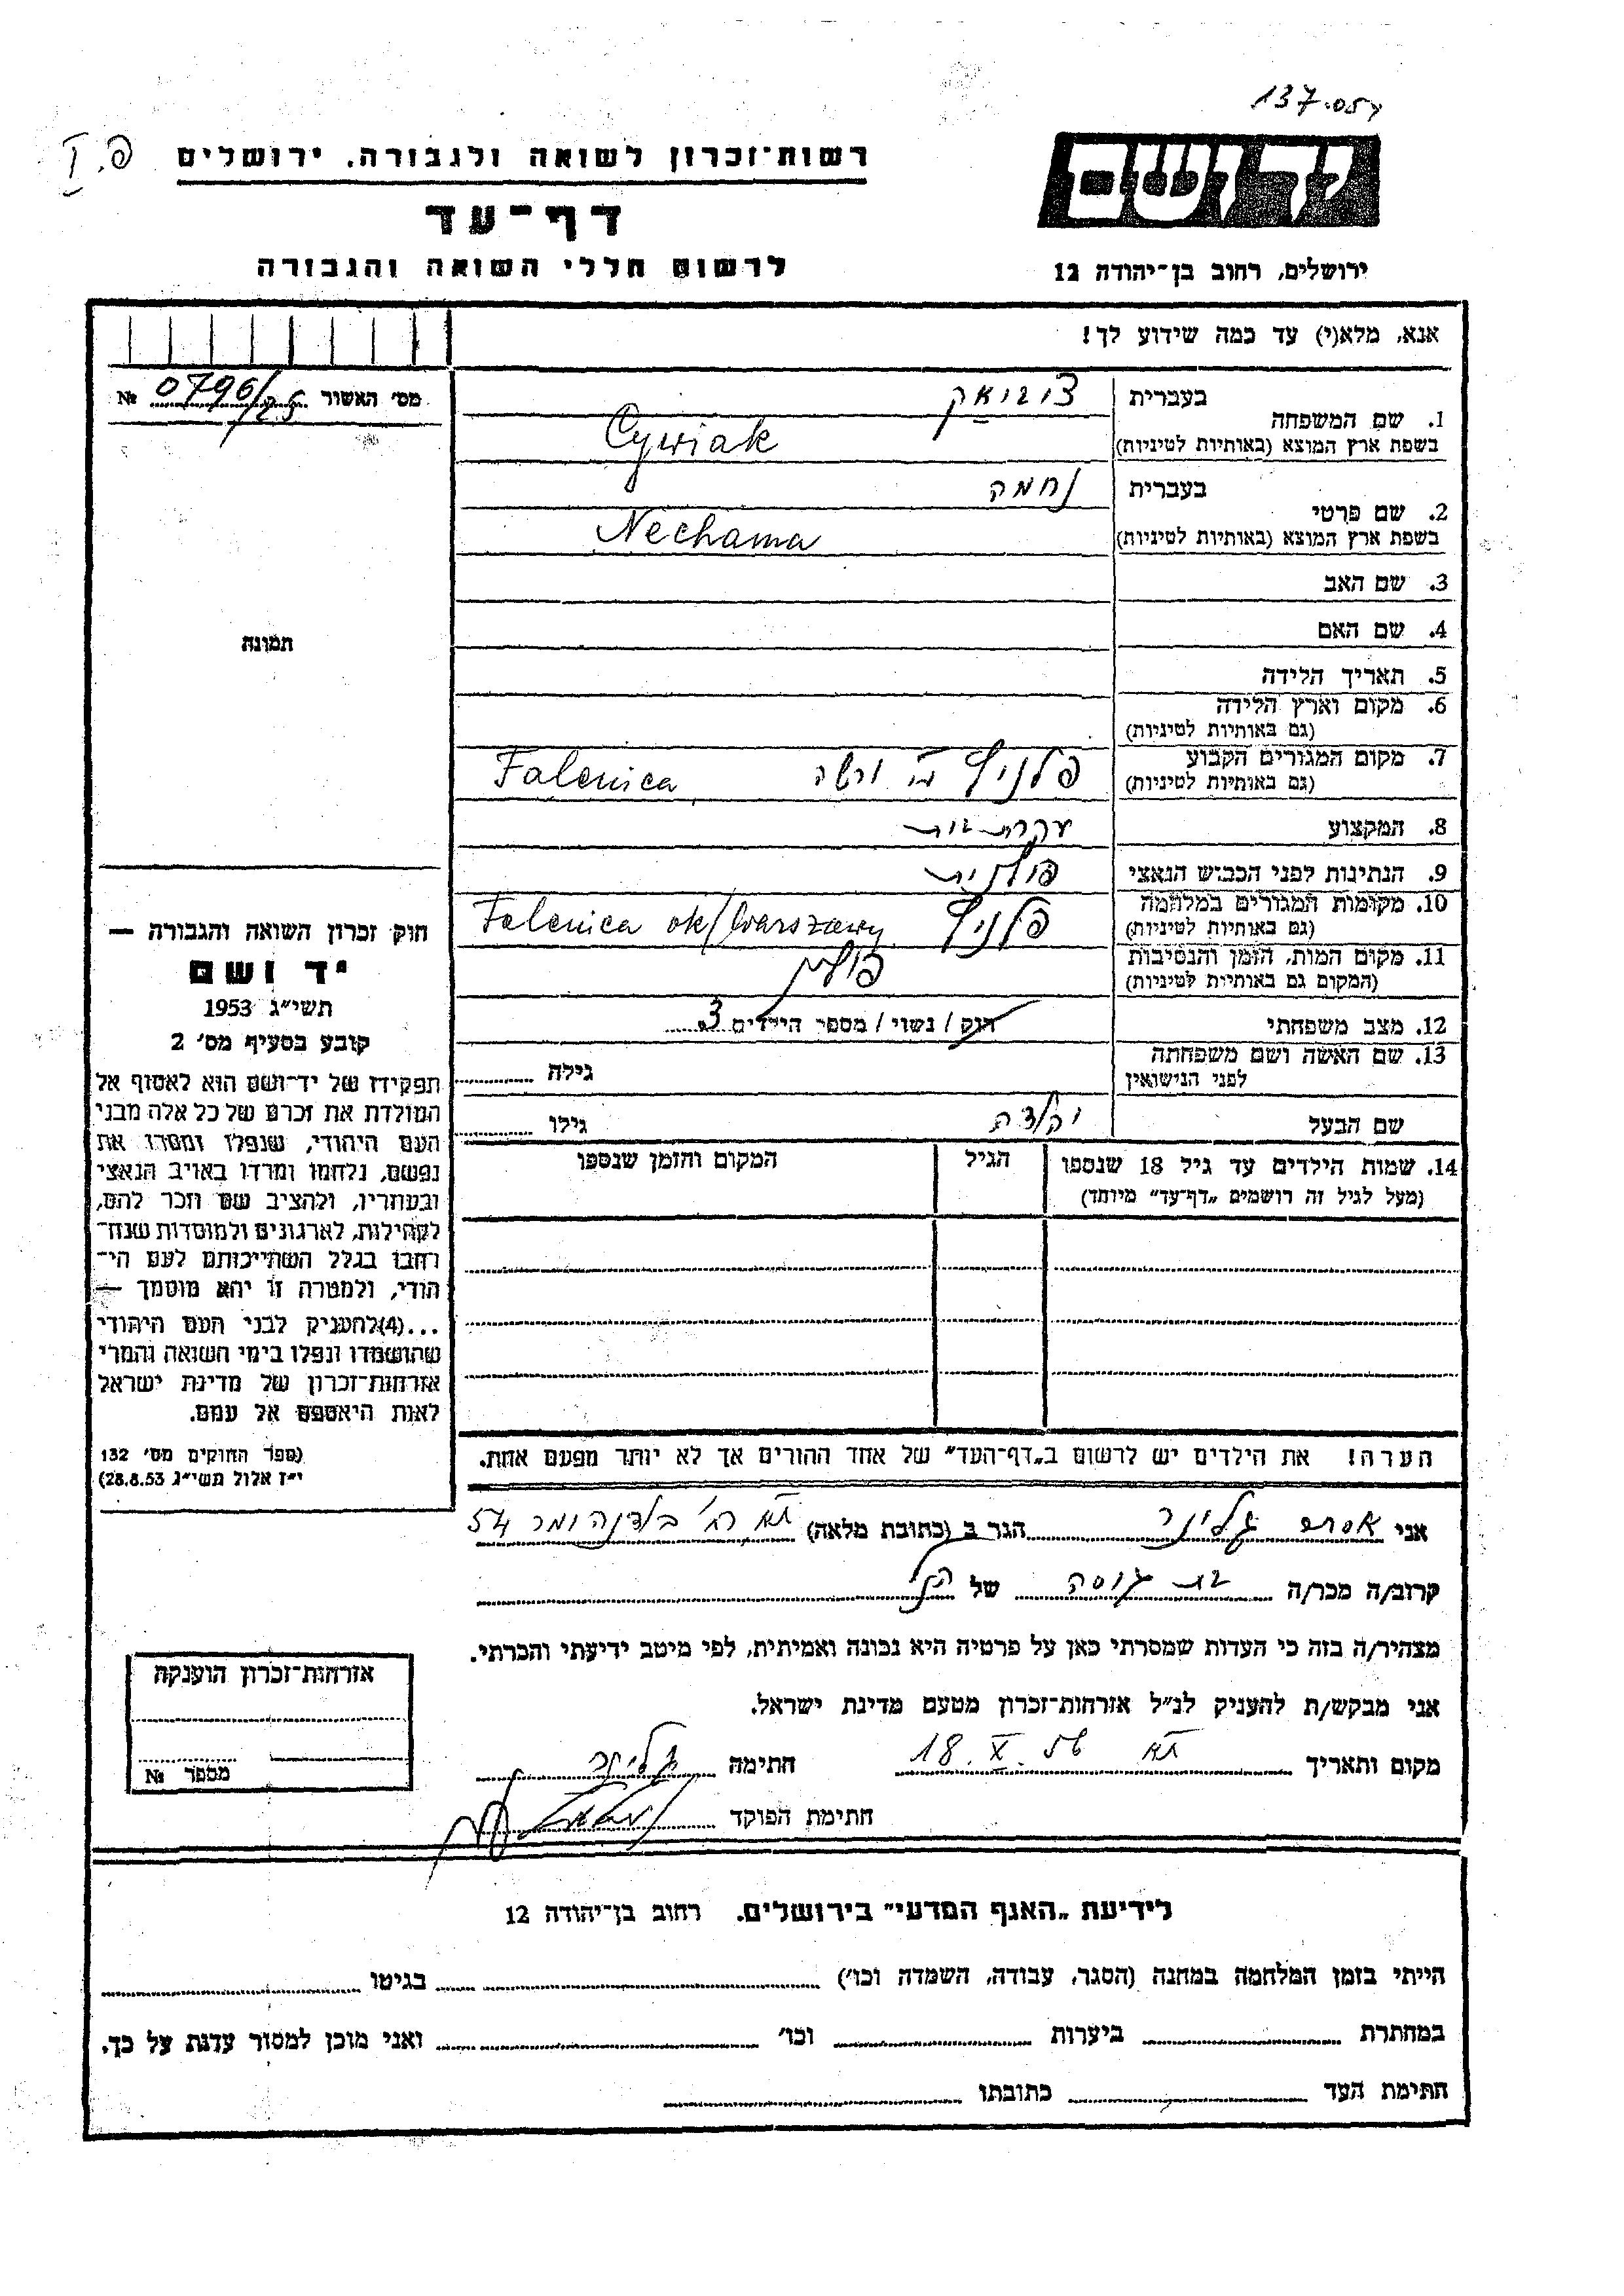 137.054
פ. ך
רשות־זכרון לשואה ולגבורה. ירושלים
יד ושם
דף־עד
לרשום חללי השואה והגבורה
ירושלים, רחוב בן־יהודה 12
אנא, מלא(י) עד כמה שידוע לך!
מס׳ האשור № 0796/25
1. שם המשפחה בעברית צוויאק
בשפת ארץ המוצא (באותיות לטיניות) Cywiak
2. שם פרטי בעברית נחמה
בשפת ארץ המוצא (באותיות לטיניות) Nechama
3. שם האב
4. שם האם
תמונה
5. תאריך הלידה
6. מקום וארץ הלידה
(גם באותיות לטיניות)
7. מקום המגורים הקבוע פלניץ ורשה Falenica
(גם באותיות לטיניות)
8. המקצוע עקרת בית
9. הנתינות לפני הכבוש הנאצי פולנית
10. מקומות המגורים במלחמה פלניץ Falenica ok/Warszawy
(גם באותיות לטיניות)
11. מקום המות, הזמן והנסיבות
(המקום גם באותיות לטיניות)
12. מצב משפחתי רוק / נשוי / מספר הילדים 3
13. שם האשה ושם משפחתה גילה
לפני הנישואין
שם הבעל גילו
14. שמות הילדים עד גיל 18 שנספו הגיל המקום והזמן שנספו
(מעל לגיל זה רושמים „דף־עד״ מיוחד)
חוק זכרון השואה והגבורה —
יד ושם
תשי״ג 1953
קובע בסעיף מס׳ 2
תפקידו של יד־ושם הוא לאסוף אל
המולדת את זכרם של כל אלה מבני
העם היהודי, שנפלו ומסרו את
נפשם, נלחמו ומרדו באויב הנאצי
ובעוזריו, ולהציב שם וזכר להם,
לקהילות, לארגונים ולמוסדות שנח־
רבו בגלל השתייכותם לעם הי־
הודי, ולמטרה זו יהא מוסמך —
...(4)להעניק לבני העם היהודי
שהושמדו ונפלו בימי השואה והמרי
אזרחות־זכרון של מדינת ישראל
לאות היאספם אל עמם.
(ספר החוקים מס׳ 132
י״ז אלול תשי״ג 28.8.53)
הערה! את הילדים יש לרשום ב„דף־העד״ של אחד ההורים אך לא יותר מפעם אחת.
אני אסתר גלינר הגר ב (כתובת מלאה) תא 54
קרוב/ה מכר/ה בת דודה של הנ״ל
מצהיר/ה בזה כי העדות שמסרתי כאן על פרטיה היא נכונה ואמיתית, לפי מיטב ידיעתי והכרתי.
אני מבקש/ת להעניק לנ״ל אזרחות־זכרון מטעם מדינת ישראל.
מקום ותאריך תא 18.X.56 חתימה גלינר
חתימת הפוקד
אזרחות־זכרון הוענקה
מספר №
לידיעת „האגף המדעי״ בירושלים. רחוב בן־יהודה 12
הייתי בזמן המלחמה במחנה (הסגר, עבודה, השמדה וכו׳) בגיטו
במחתרת ביערות וכו׳ ואני מוכן למסור עדות על כך.
חתימת העד כתובתו